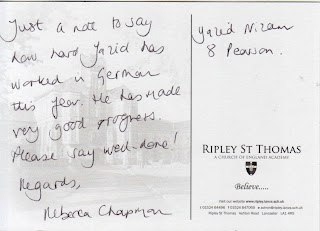 Just a note to say
how hard Yazid has
worked in German
this year. He has made
very good progress.
Please say well-done!
Regards,
Rebecca Chapman
Yazid Nizam
8 Pearson.
RIPLEY ST THOMAS
A CHURCH OF ENGLAND ACADEMY
Believe.....
Visit our website www.ripley.lancs.sch.uk
Ripley St Thomas Ashton Road Lancaster LA1 4RS